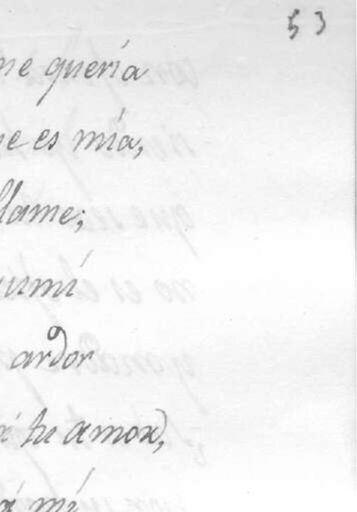 53
me quería
ue es mía,
llame;
umí
ardor
tu amor,
mí